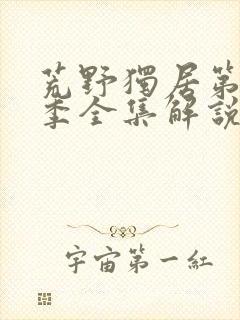 荒野獨居第
季全集解說
宇宙第一紅